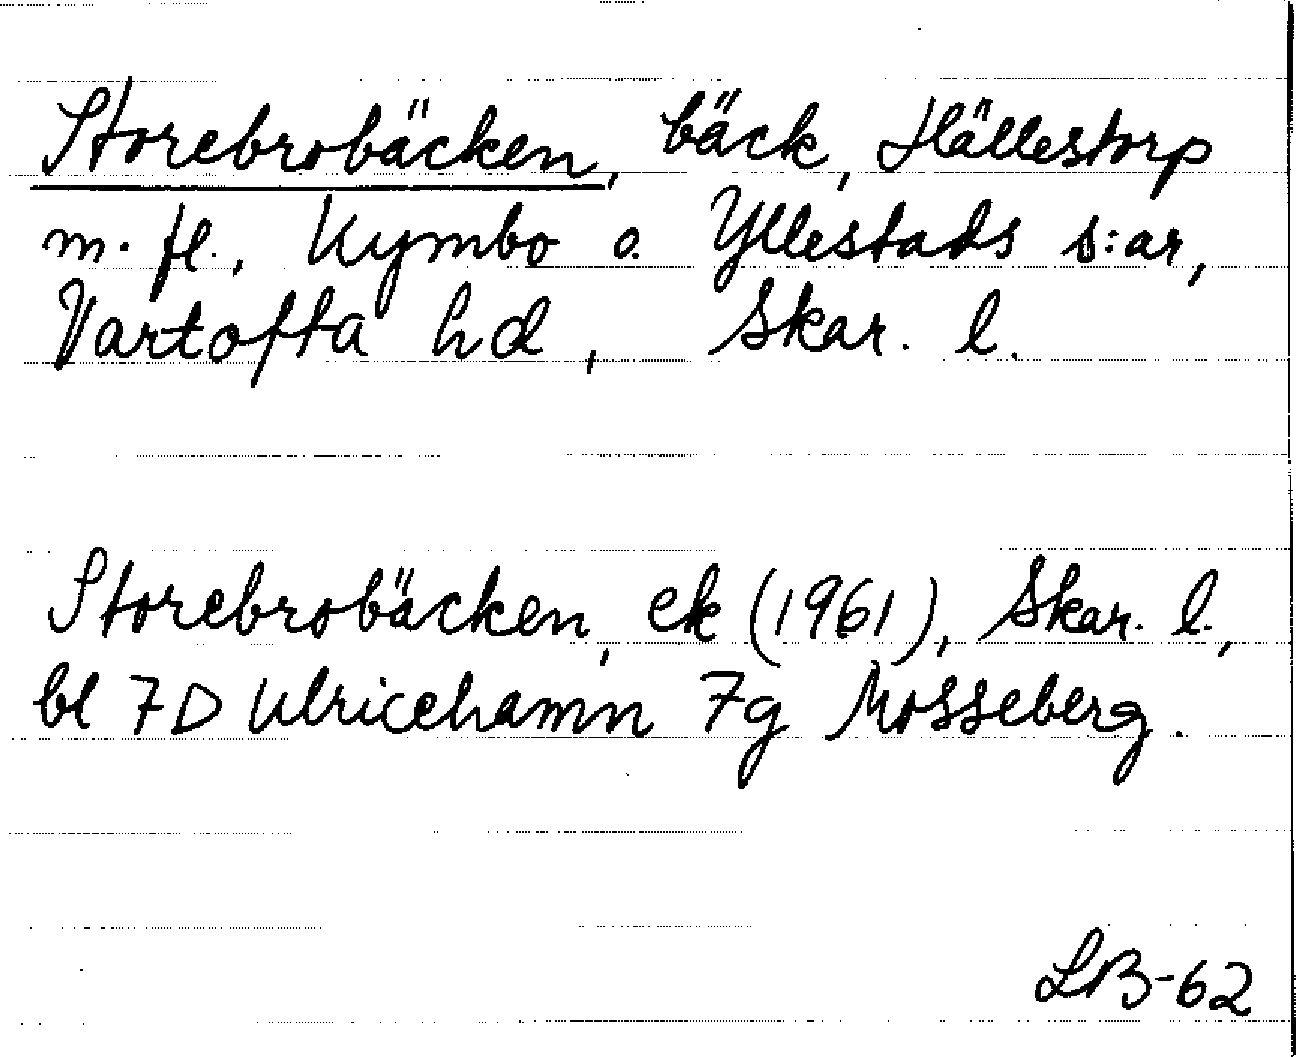 Storebrobäcken, bäck, Hällestorp
m. fl., Kymbo o. Yllestads s:ar,
Vartofta hd, Skar. l.
Storebrobäcken, ek (1961), Skar. l.,
bl 7D Ulricehamn 7g Mosseberg.
LB-62